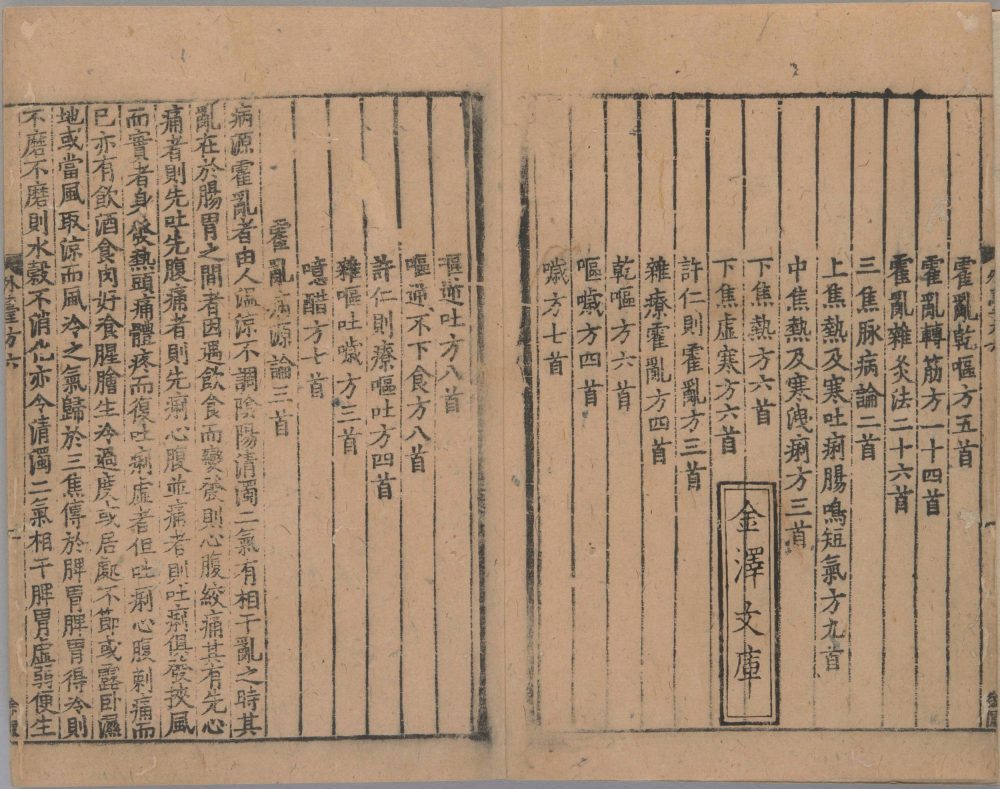 霍亂乾嘔方五首
霍亂轉筋方一十四首
霍亂雜灸法二十六首
三焦脉病論二首
上焦熱及寒吐痢腸鳴短氣方九首
中焦熱及寒洩痢方三首
下焦熱方六首
下焦虛寒方六首
許仁則霍亂方三首
雜療霍亂方四首
乾嘔方六首
嘔噦方四首
噦方七首
金澤文庫
嘔逆吐方八首
嘔逆不下食方八首
許仁則療嘔吐方四首
雜嘔吐噦方三首
噫醋方七首
霍亂病源論三首
病源霍亂者由人溫涼不調陰陽清濁二氣有相干亂之時其
亂在於腸胃之間者因遇飲食而變發則心腹絞痛其有先心
痛者則先吐先腹痛者則先痢心腹並痛者則吐痢俱發挾風
而實者身發熱頭痛體疼而復吐痢虛者但吐痢心腹刺痛而
已亦有飲酒食肉好飡腥膾生冷過度或居處不節或露卧濕
地或當風取涼而風冷之氣歸於三焦傳於脾胃脾胃得冷則
不磨不磨則水穀不消化亦令清濁二氣相干脾胃虛弱便生
外臺方六
一